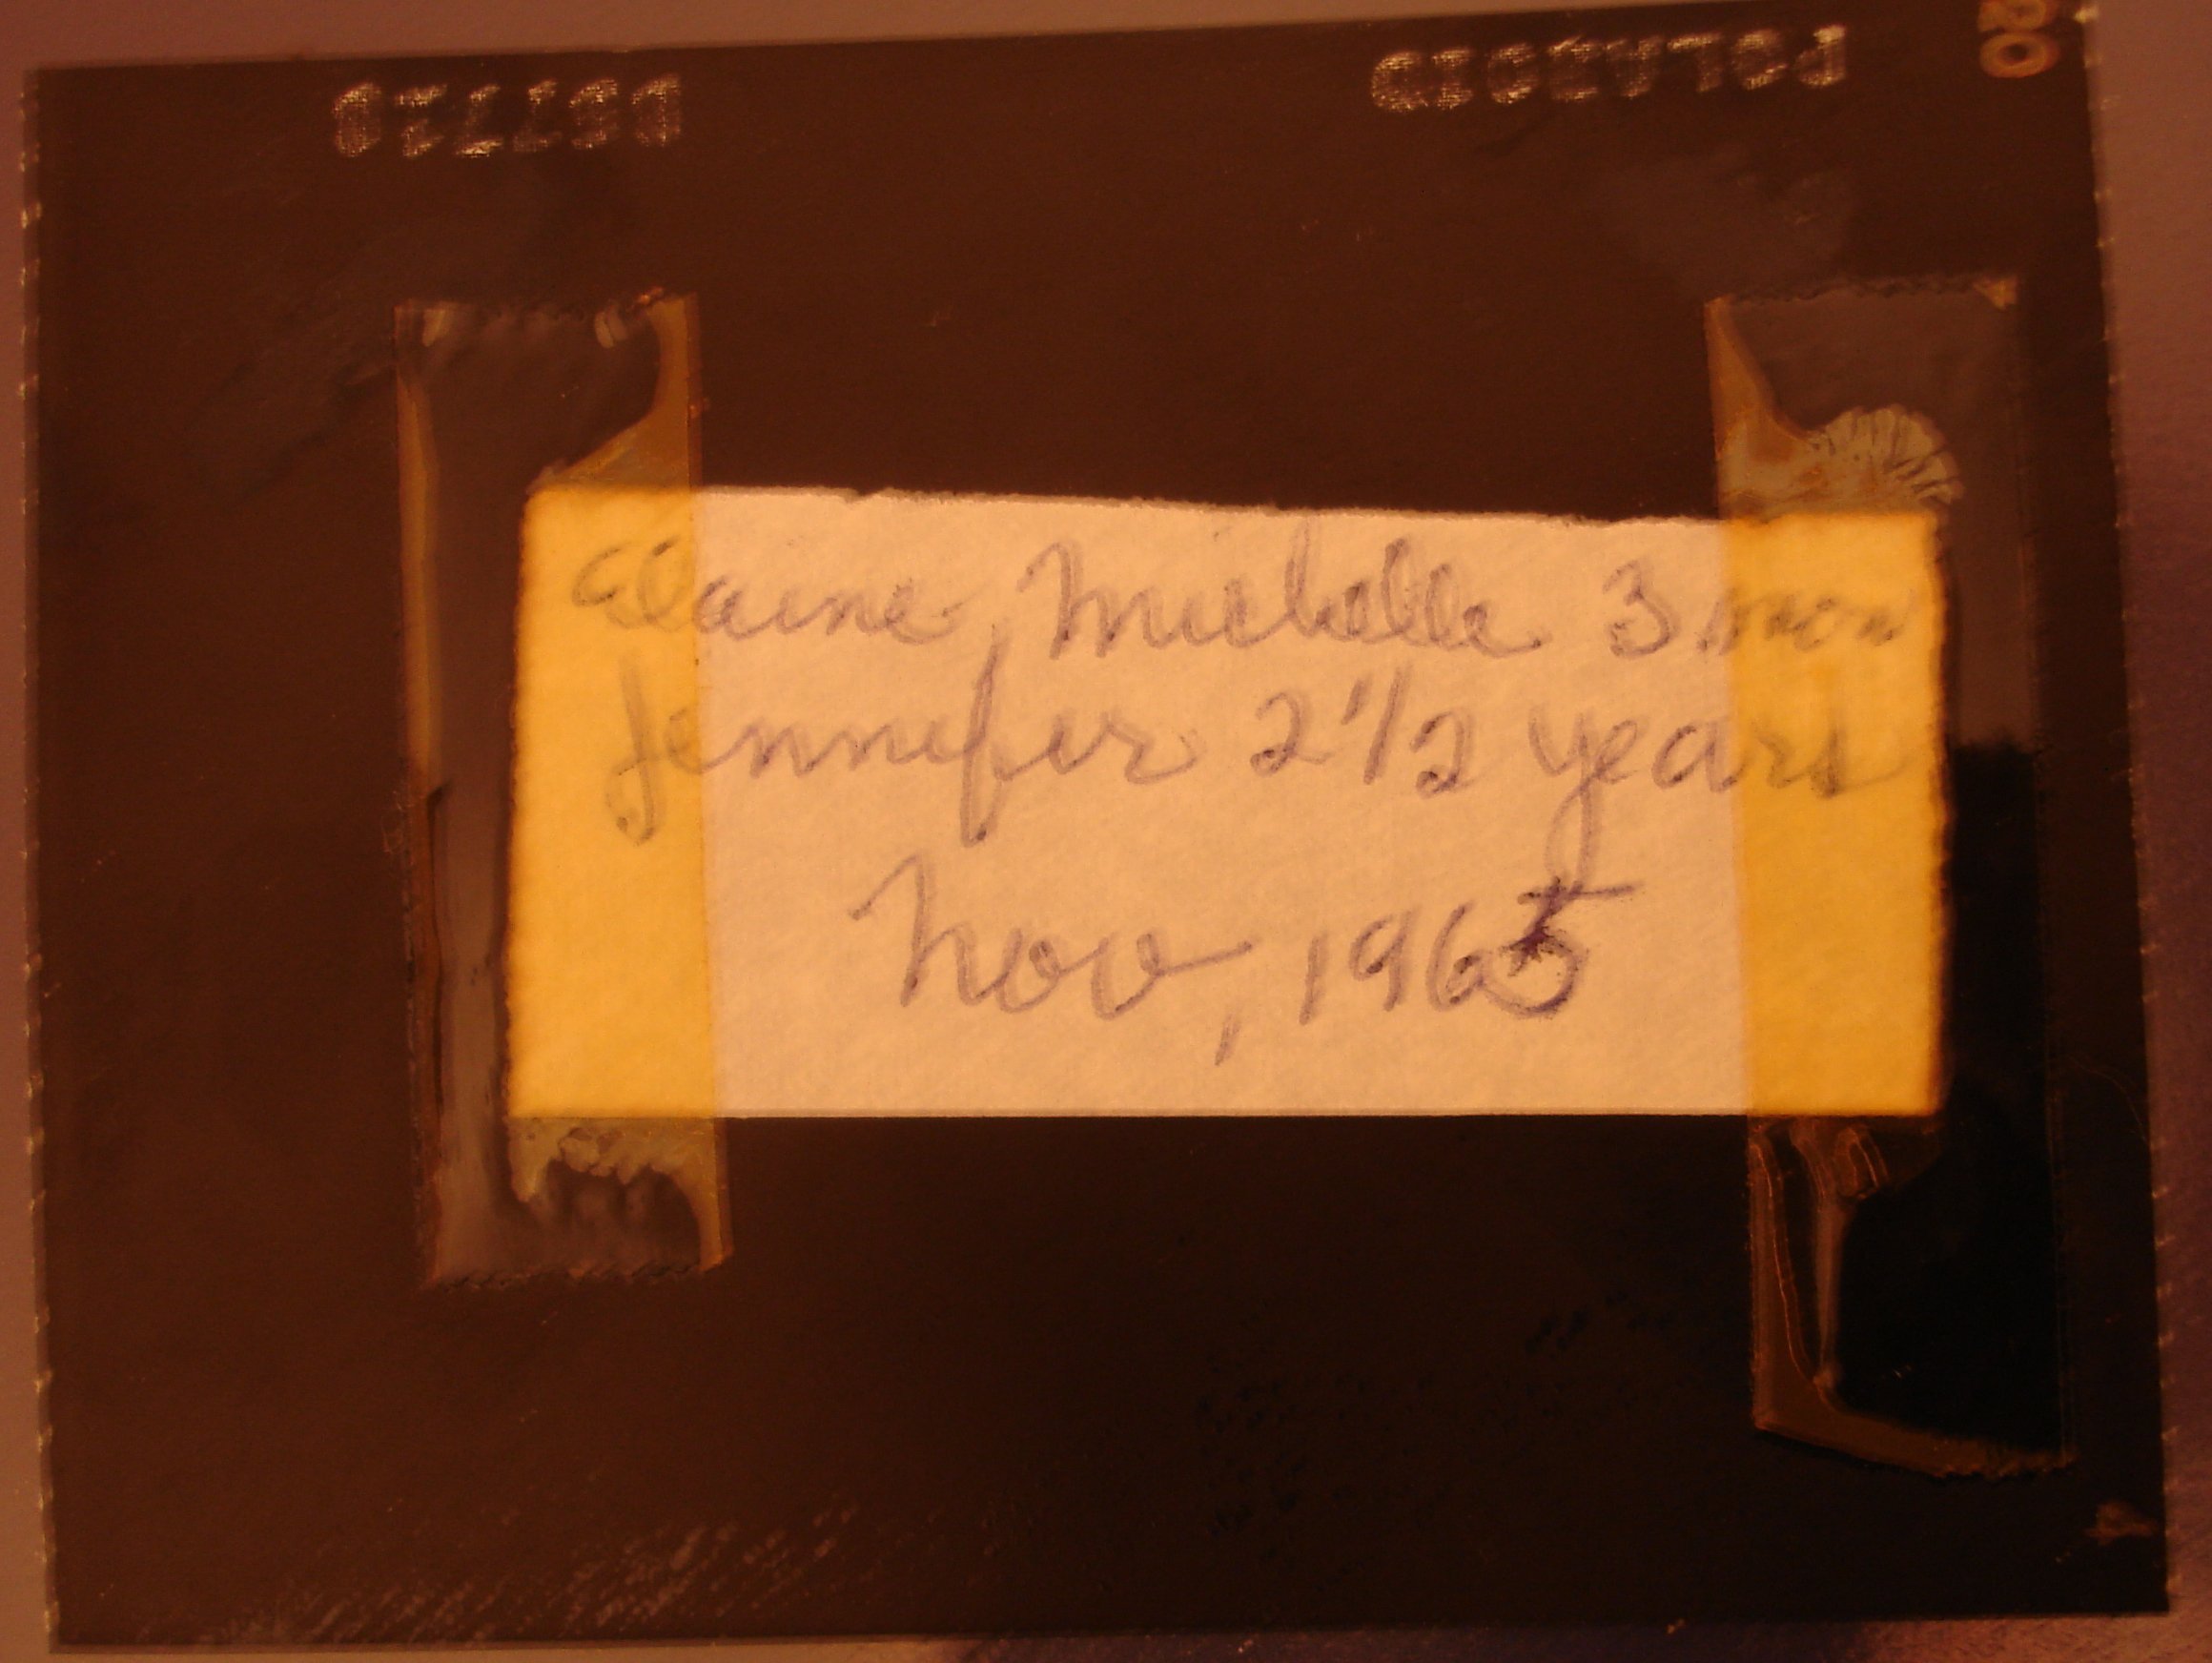 POLAROID
Elaine, Michelle 3 mon
Jennifer 2 1/2 years
Nov, 1965